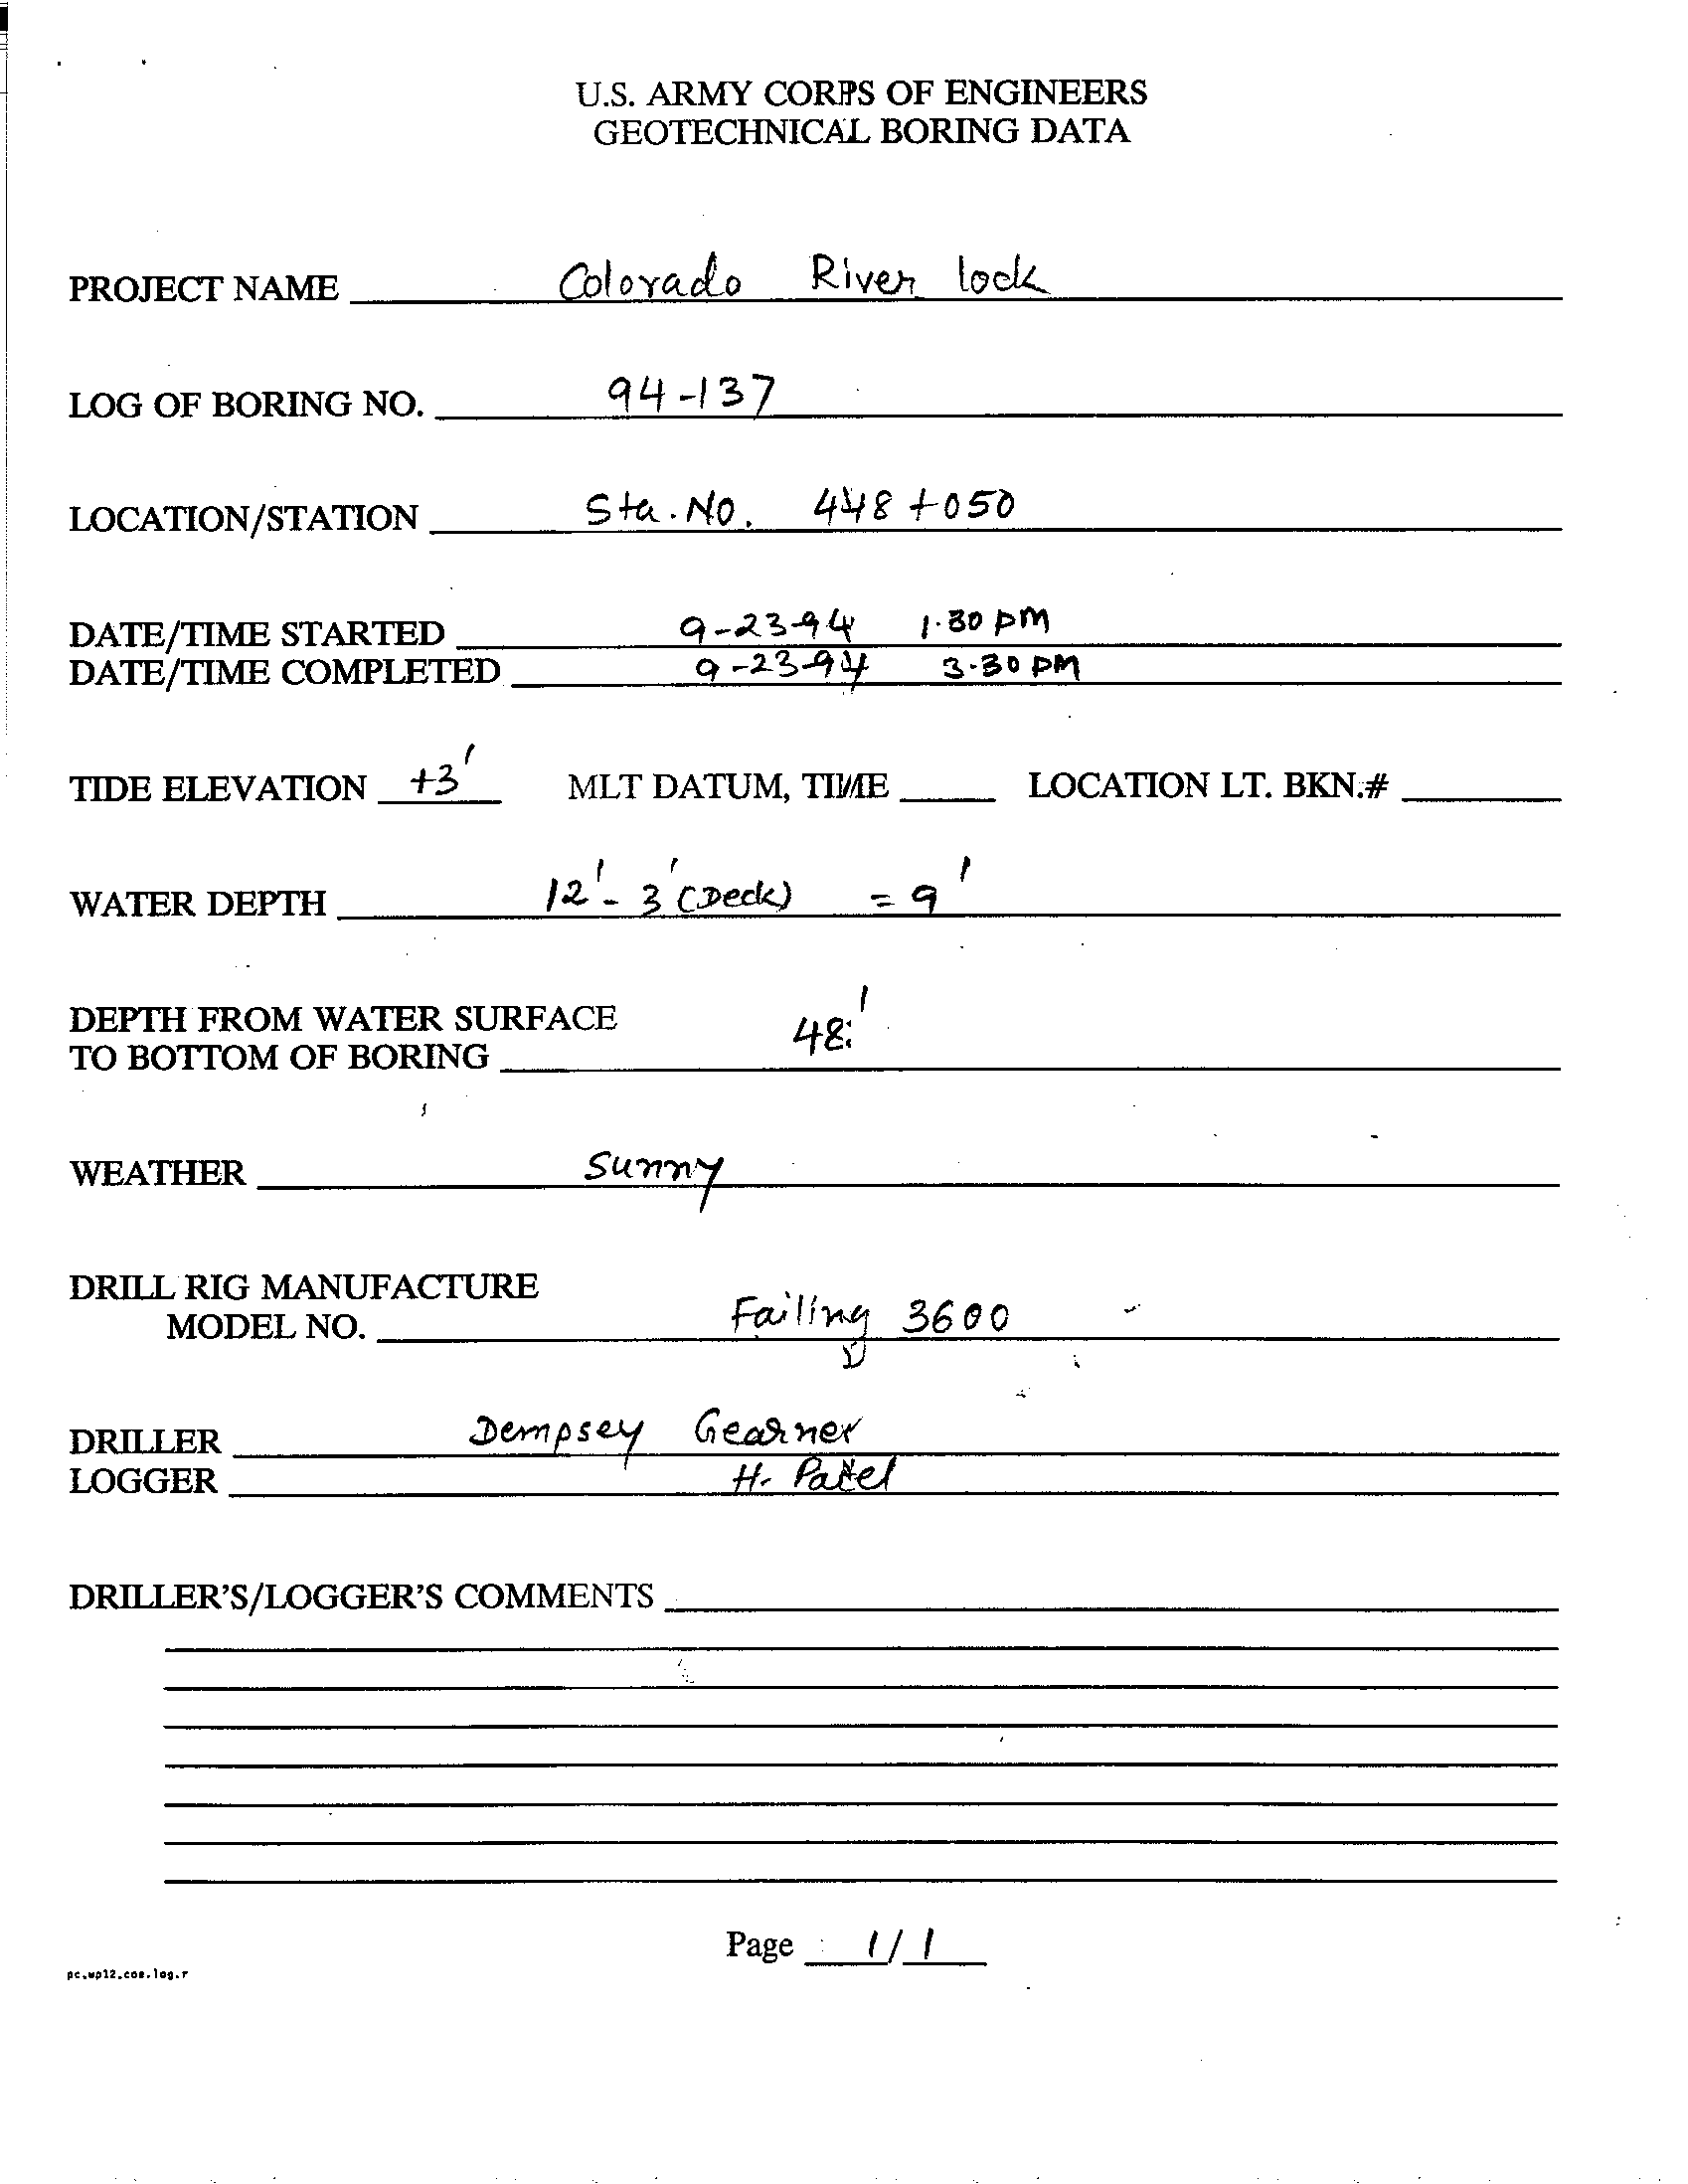 U.S. ARMY CORPS OF ENGINEERS
GEOTECHNICAL BORING DATA
PROJECT NAME Colorado River lock
LOG OF BORING NO. 94-137
LOCATION/STATION Sta. No. 448+050
DATE/TIME STARTED 9-23-94 1.30 PM
DATE/TIME COMPLETED 9-23-94 3.30 PM
TIDE ELEVATION +3' MLT DATUM, TIME LOCATION LT. BKN.#
WATER DEPTH 12' - 3' (Deck) = 9'
DEPTH FROM WATER SURFACE
TO BOTTOM OF BORING 48'
WEATHER Sunny
DRILL RIG MANUFACTURE
MODEL NO. Failing 3600
DRILLER Dempsey Gearner
LOGGER H. Patel
DRILLER'S/LOGGER'S COMMENTS
Page 1/1
pc.wp12.coe.log.r